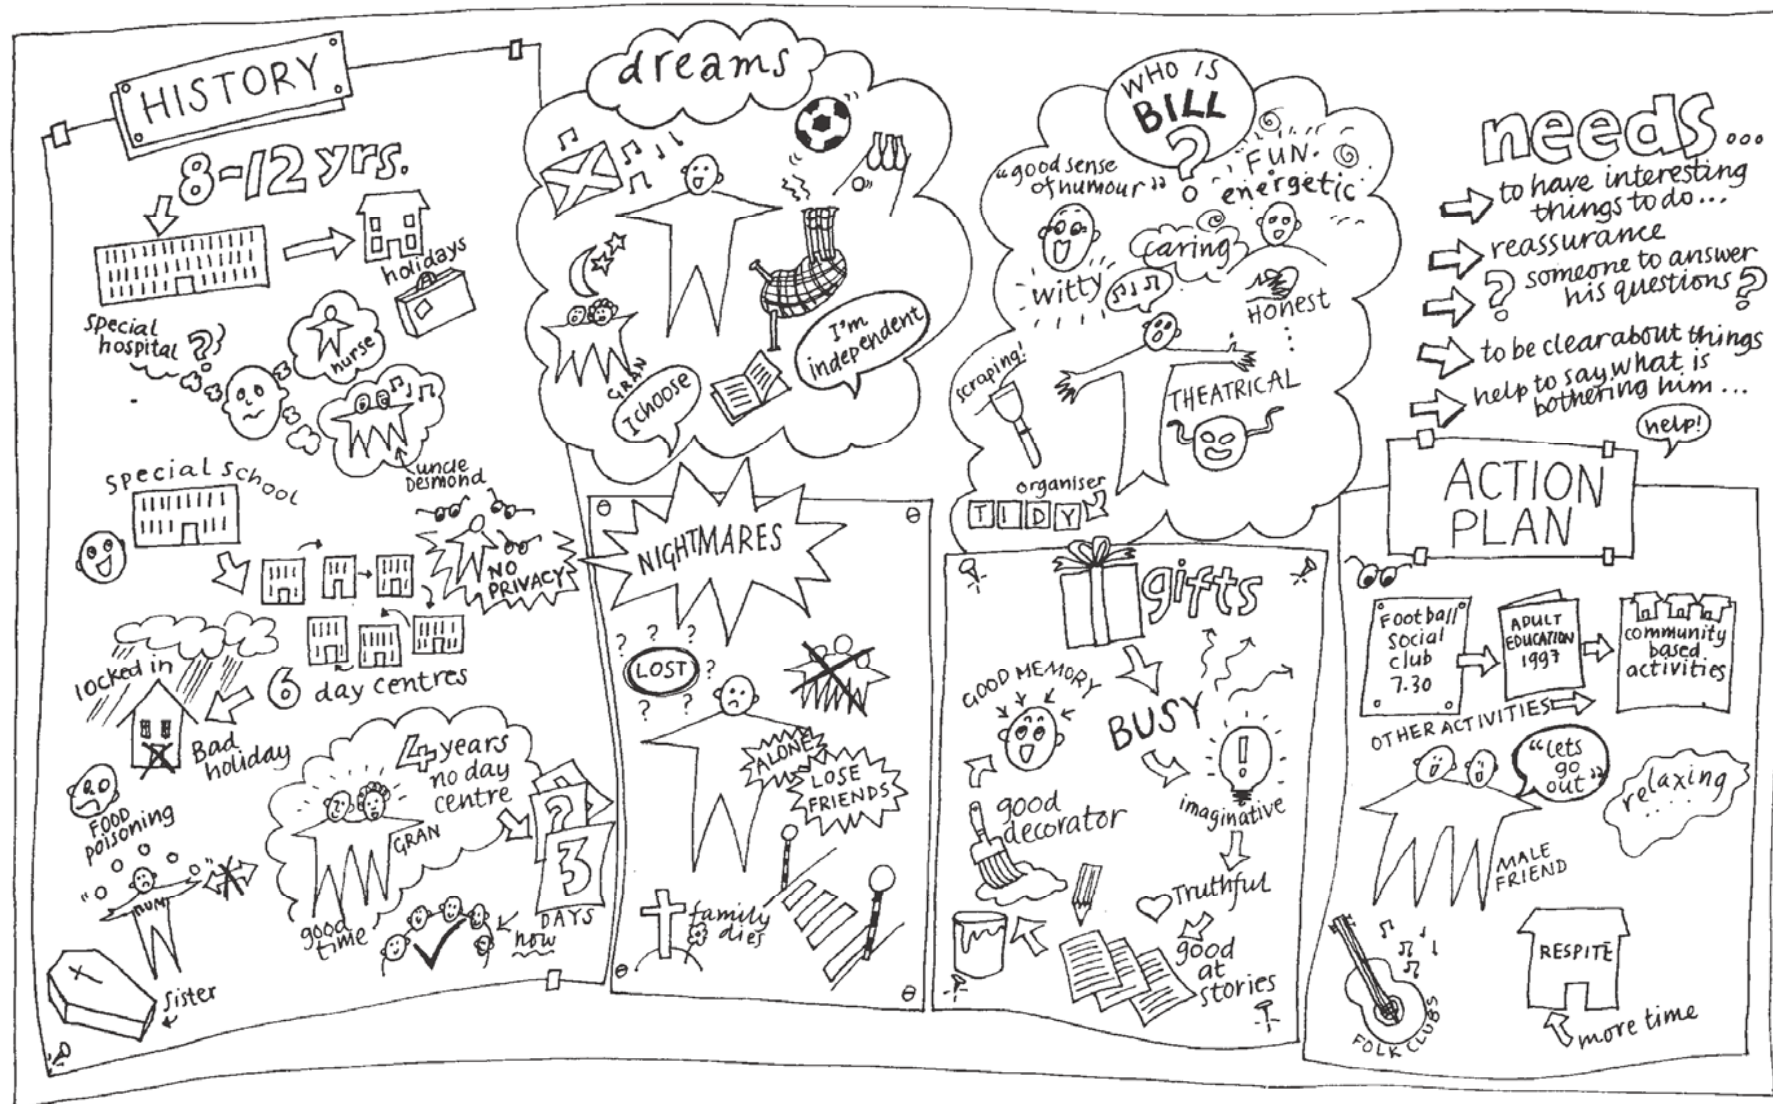 HISTORY
8-12 yrs.
holidays
special
hospital ?
nurse
uncle
Desmond
special school
NO
PRIVACY
locked in
6 day centres
Bad
holiday
FOOD
poisoning
4 years
no day
centre
GRAN
good
time
MUM
?
3
DAYS
now
sister
dreams
GRAN
I CHOOSE
I'm
independent
NIGHTMARES
? ? ?
? LOST ?
? ?
ALONE
LOSE
FRIENDS
family
dies
WHO IS
BILL
?
"good sense
of humour"
FUN.
energetic
caring
witty
HONEST
scraping!
THEATRICAL
organiser
TIDY
gifts
GOOD MEMORY
BUSY
!
imaginative
good
decorator
Truthful
good
at
stories
needs...
to have interesting
things to do...
reassurance
? someone to answer
his questions ?
to be clear about things
help to say what is
bothering him...
help!
ACTION
PLAN
Football
social
club
7.30
ADULT
EDUCATION
1997
community
based
activities
OTHER ACTIVITIES
"Lets
go
out"
relaxing
....
MALE
FRIEND
FOLK CLUBS
RESPITE
more time